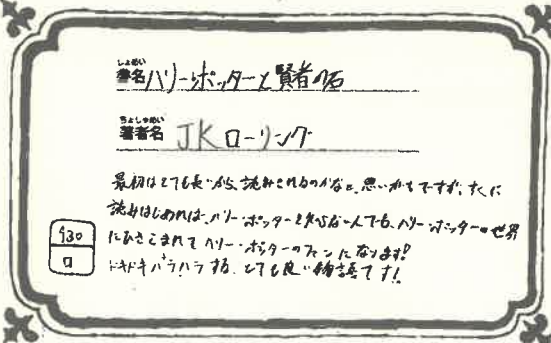 しょめい
書名 ハリーポッターと賢者の石
ちょしゃめい
著者名 JKローリング
最初はとても長いから、読みきれるのかなと、思いがちですが、すぐに
読みはじめれば、ハリーポッターを知らない人でも、ハリーポッターの世界
にひきこまれて ハリーポッターのファンになります!
ドキドキハラハラする、とても良い物語です!
930
ロ